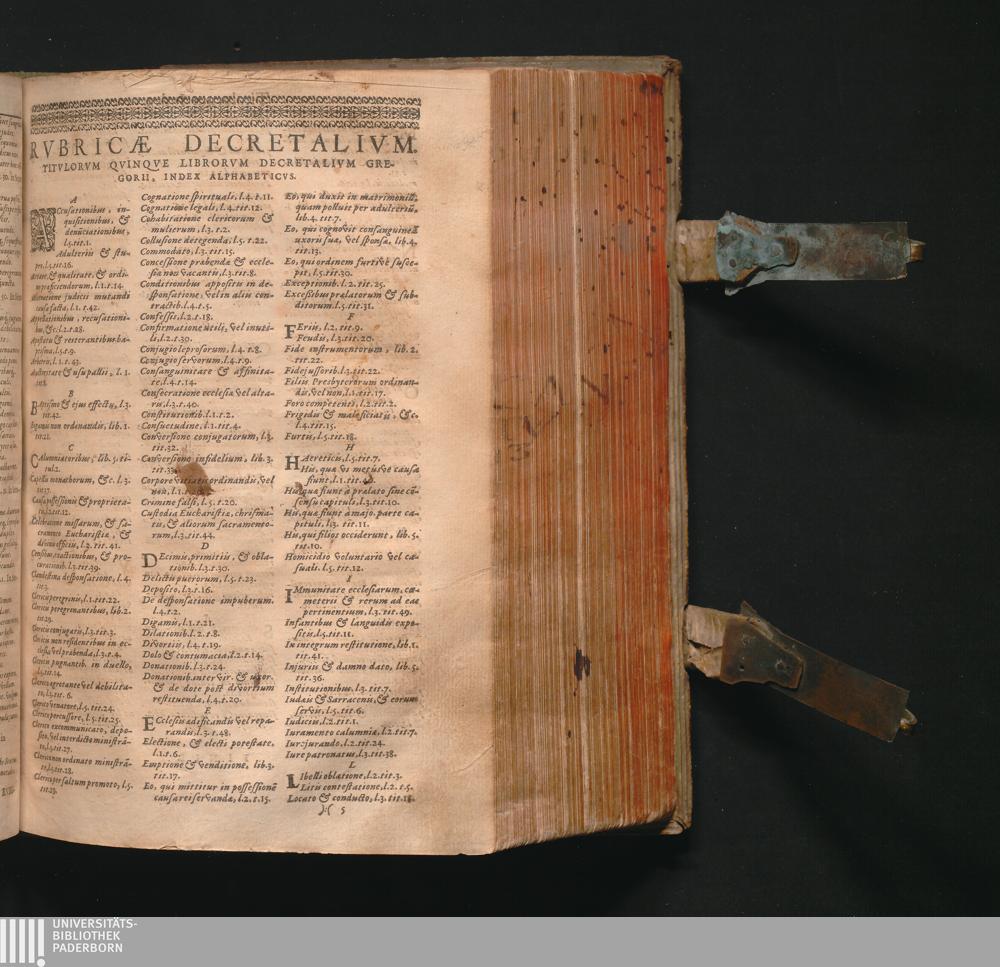 RVBRICÆ DECRETALIVM.
TITVLORVM QVINQVE LIBRORVM DECRETALIVM GRE-
GORII, INDEX ALPHABETICVS.
A
ACcusationibus, in-
quisitionibus, &
denũciationibus,
l.5.tit.1.
Adulteriis & stu-
pri, l.5.tit.16.
& qualitate, & ordi-
præficiendorum, l.1.t.14.
Alienatione judicii mutandi
causa facta, l.1.t.42.
Appellationibus, recusationi-
bus, &c. l.2.t.28.
Apostatis & reiterantibus ba-
ptisma, l.5.t.9.
Arbitris, l.1.t.43.
Auctoritate & usu pallii, l.1.
tit.8.
B
BAptismo & ejus effectu, l.3.
tit.42.
Bigamis non ordinandis, lib.1.
tit.21.
C
CAlumniatoribus, lib.5. ti-
tul.2.
Capellis monachorum, &c. l.3.
tit.37.
Causa possessionis & proprieta-
tis, l.2.tit.12.
Celebratione missarum, & sa-
cramento Eucharistiæ, &
divinis officiis, l.3.tit.41.
Censibus, exactionibus, & pro-
curationib. l.3.tit.39.
Clandestina desponsatione, l.4.
tit.3.
Clericis peregrinis, l.1.tit.22.
Clericis peregrinantibus, lib.2.
tit.29.
Clericis conjugatis, l.3.tit.3.
Clericis non residentibus in ec-
clesia, vel præbenda, l.3.t.4.
Clericis pugnantib. in duello,
l.5.tit.14.
Clerico ægrotante vel debilita-
to, l.3.tit.6.
Clerico venatore, l.5.tit.24.
Clerico percussore, l.5.tit.25.
Clerico excommunicato, depo-
sito, vel interdicto ministrã-
te, l.5.tit.27.
Clerico non ordinato ministrã-
te, l.5.tit.28.
Clerico per saltum promoto, l.5.
tit.29.
Cognatione spirituali, l.4.t.11.
Cognatione legali, l.4.tit.12.
Cohabitatione clericorum &
mulierum, l.3.t.2.
Collusione detegenda, l.5.t.22.
Commodato, l.3.tit.15.
Concessione præbendæ & eccle-
siæ non vacantis, l.3.tit.8.
Conditionibus appositis in de-
sponsatione, vel in aliis con-
tractib. l.4.t.5.
Confessis, l.2.t.18.
Confirmatione utili, vel inuti-
li, l.2.t.30.
Conjugio leprosorum, l.4.t.8.
Conjugio servorum, l.4.t.9.
Consanguinitate & affinita-
te, l.4.t.14.
Consecratione ecclesiæ vel alta-
ris, l.3.t.40.
Constitutionib. l.1.t.2.
Consuetudine, l.1.tit.4.
Conversione conjugatorum, l.3.
tit.32.
Conversione infidelium, lib.3.
tit.33.
Corpore vitiatis ordinandis, vel
non, l.1.
Crimine falsi, l.5.t.20.
Custodia Eucharistiæ, chrisma-
tis, & aliorum sacramento-
rum, l.3.tit.44.
D
DEcimis, primitiis, & obla-
tionib. l.3.t.30.
Delictis puerorum, l.5.t.23.
Deposito, l.3.t.16.
De desponsatione impuberum.
l.4.t.2.
Digamis, l.1.t.21.
Dilationib. l.2.t.8.
Divortiis, l.4.t.19.
Dolo & contumacia, l.2.t.14.
Donationib. l.3.t.24.
Donationib. inter vir. & uxor.
& de dote post divortium
restituenda, l.4.t.20.
E
ECclesiis ædificandis vel repa-
randis, l.3.t.48.
Electione, & electi potestate,
l.1.t.6.
Emptione & venditione, lib.3.
tit.17.
Eo, qui mittitur in possessionẽ
causa rei servandæ, l.2.t.15.
Eo, qui duxit in matrimoniũ,
quam polluit per adulteriũ,
lib.4.tit.7.
Eo, qui cognovit consanguineã
uxoris suæ, vel sponsæ, lib.4.
tit.13.
Eo, qui ordinem furtivè susce-
pit, l.5.tit.30.
Exceptionib. l.2.tit.25.
Excessibus prælatorum & sub-
ditorum. l.5.tit.31.
F
FEriis, l.2.tit.9.
Feudis, l.3.tit.20.
Fide instrumentorum, lib.2.
tit.22.
Fidejussorib. l.3.tit.22.
Filiis Presbyterorum ordinan-
dis, vel non, l.1.tit.17.
Foro competenti, l.2.tit.2.
Frigidis & maleficiatis, &c.
l.4.tit.15.
Furtis, l.5.tit.18.
H
HÆreticis, l.5.tit.7.
His, quæ vi metusve causa
fiunt, l.1.tit.
His quæ fiunt à prælato sine cõ-
sensu capituli, l.3.tit.10.
His, quæ fiunt à majo. parte ca-
pituli, l.3. tit.11.
His, qui filios occiderunt, lib.5.
tit.10.
Homicidio voluntario vel ca-
suali. l.5.tit.12.
I
IMmunitate ecclesiarum, cœ-
meterii & rerum ad eas
pertinentium, l.3.tit.49.
Infantibus & languidis expo-
sitis, l.5.tit.11.
In integrum restitutione, lib.1.
tit.41.
Injuriis & damno dato, lib.5.
tit.36.
Institutionibus, l.3.tit.7.
Iudæis & Sarracenis, & eorum
servis, l.5.tit.6.
Iudiciis, l.2.tit.1.
Iuramento calumniæ, l.2.tit.7.
Iurejurando, l.2.tit.24.
Iure patronatus, l.3.tit.38.
L
LIbelli oblatione, l.2.tit.3.
Litis contestatione, l.2.t.5.
Locato & conducto, l.3.tit.18.
):( 5
UNIVERSITÄTS-
BIBLIOTHEK
PADERBORN